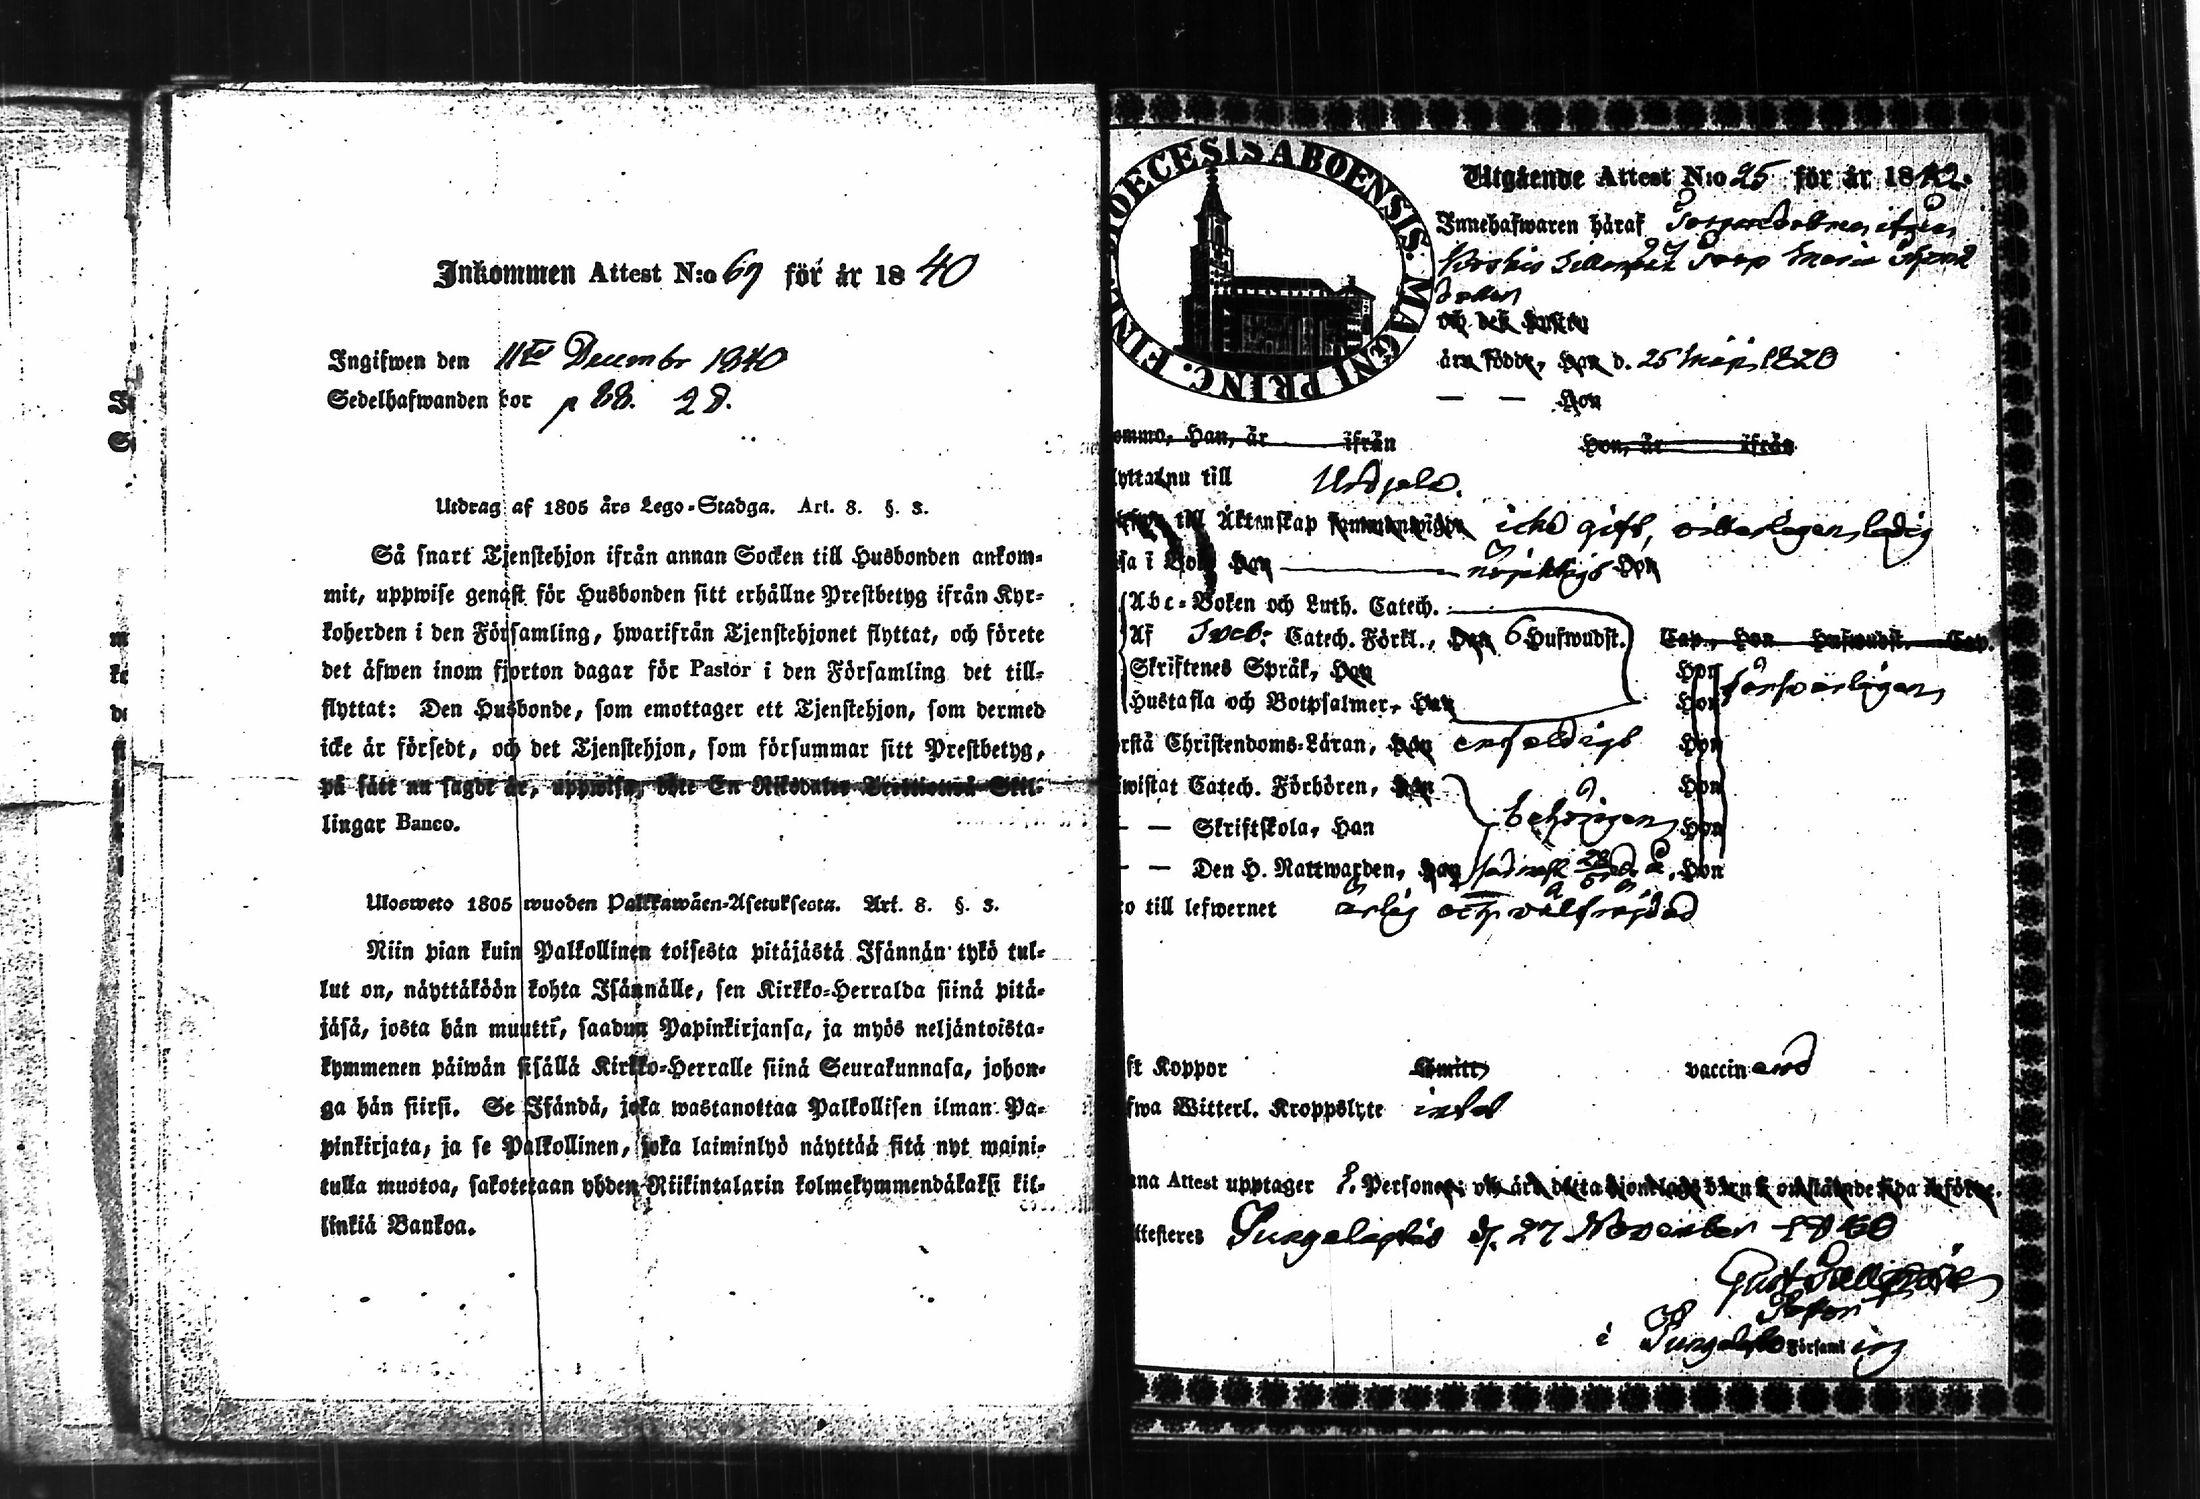 Inkommen Attest N:o 69 för år 1840
Ingifwen den 11te Decembr 1840
Sedelhafwanden bor p 88. 28.
Utdrag af 1805 års Lego-Stadga. Art. 8. §. 3.
Så snart Tjenstehjon ifrån annan Socken till Husbonden ankom-
mit, uppwise genast för Husbonden sitt erhållne Prestbetyg ifrån Kyr-
koherden i den Församling, hwarifrån Tjenstehjonet flyttat, och förete
det äfwen inom fjorton dagar för Pastor i den Församling det till-
flyttat: Den Husbonde, som emottager ett Tjenstehjon, som dermed
icke är försedt, och det Tjenstehjon, som försummar sitt Prestbetyg,
på sätt nu sagdt är, uppwisa, böte En Riksdaler Trettiotwå Skil-
lingar Banco.
Ulosweto 1805 wuoden Palkkawäen-Asetuksesta. Art. 8. §. 3.
Niin pian kuin Palkollinen toisesta pitäjästä Isännän tykö tul-
lut on, näyttäköön kohta Isännälle, sen Kirkko-Herralda siinä pitä-
jäsä, josta hän muutti, saadun Papinkirjansa, ja myös neljäntoista-
kymmenen päiwän sisällä Kirkko-Herralle siinä Seurakunnasa, johon-
ga hän siirsi. Se Isändä, joka wastanottaa Palkollisen ilman Pa-
pinkirjata, ja se Palkollinen, joka laiminlyö näyttää sitä nyt maini-
tulla muotoa, sakotetaan yhden Riikintalarin kolmekymmendäkaksi kil-
linkiä Bankoa.
DIOECESIS ABOENSIS. MAGNI PRINC. FINL
Utgående Attest N:o 25 för år 18
Innehafwaren häraf
Maria
och dess hustru
äro födde, Han d. 25 Maji 1820
— — Hon
omme, Han, är ifrån Hon, är ifrån
lyttat nu till Urdjala.
till Äktenskap sammanwigde icke gift, ledig
sa i Bok Han nöjaktigt Hon
Abc-Boken och Luth. Catech.
Af Sveb: Catech. Förkl., Han 6 Hufwudst. Cap., Hon Hufwudst. Cap.
Skriftenes Språk, Han Hon försvarligen
Hustafla och Botpsalmer, Han Hon
rstå Christendoms-Läran, Han enfaldigt Hon
wistat Catech. Förhören, Han Hon
— — Skriftskola, Han behörigen Hon
— — Den H. Nattwarden, Han Hon
o till lefwernet ärlig och välfräjdad
ft Koppor Smitt vaccinerad
fwa Witterl. Kroppslyte intet
nna Attest upptager 1. Personer, och äro detta Hjonelags barn
ttesteres Pungalaitio d. 27 November 1840
Gust
Pastor
i Pungalaitio Församling